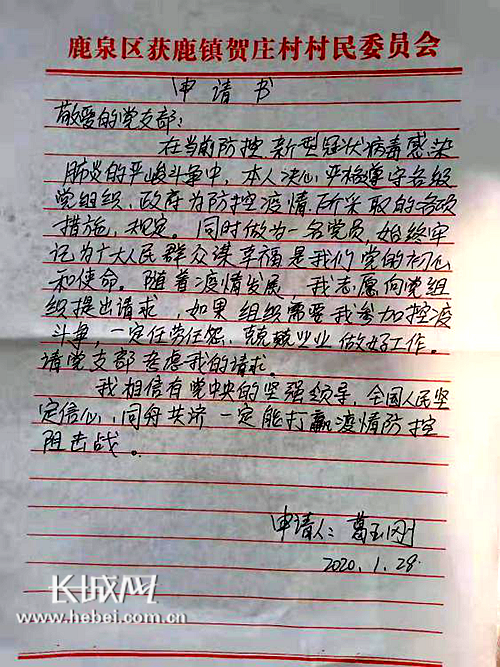 鹿泉区获鹿镇贺庄村村民委员会
申请书
敬爱的党支部:
在当前防控新型冠状病毒感染
肺炎的严峻斗争中,本人决心严格遵守各级
党组织、政府为防控疫情所采取的各项
措施,规定。同时做为一名党员,始终牢
记为广大人民群众谋幸福是我们党的初心
和使命。随着疫情发展,我志愿向党组
织提出请求,如果组织需要我参加控疫
斗争,一定任劳任怨,兢兢业业做好工作。
请党支部考虑我的请求。
我相信有党中央的坚强领导,全国人民坚
定信心,同舟共济一定能打赢疫情防控
阻击战。
申请人:葛玉刚
2020.1.29.
长城网
www.hebei.com.cn